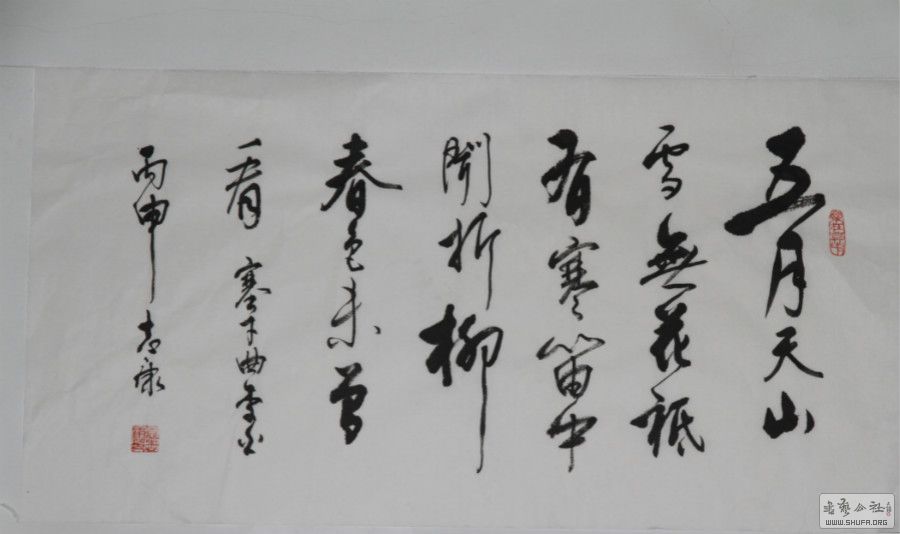 五月天山
雪無花祗
有寒笛中
聞折柳
春色未曾
看 塞下曲李白
丙申 志康
書藝公社
WWW.SHUFA.ORG